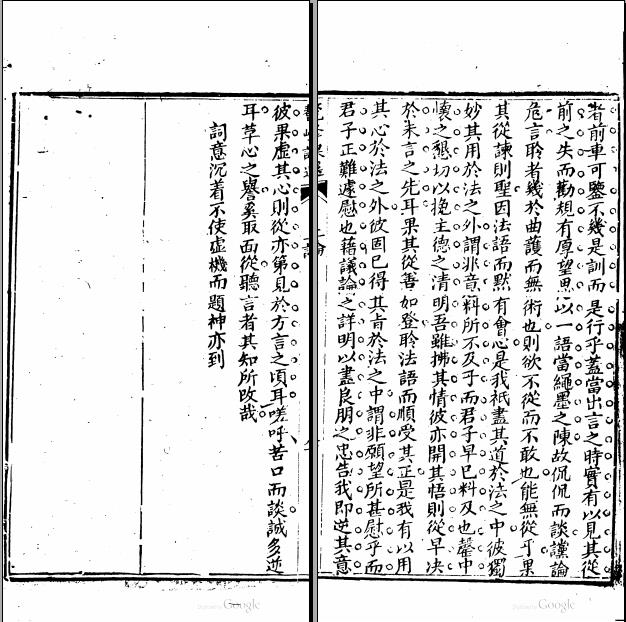 者前車可鑒不幾是訓而是行乎蓋當出言之時實有以見其從
前之失而勸規有厚望思以一語當繩墨之陳故侃侃而談讜論
危言聆者幾於曲護而無術也則欲不從而不敢也能無從乎果
其從諫則聖因法語而默有會心是我祇盡其道於法之中彼獨
妙其用於法之外謂非意料所不及乎而君子早已料及也罄中
懷之懇切以挽主德之清明吾雖拂其情彼亦開其悟則從早决
於未言之先耳果其從善如登聆法語而順受其正是我有以用
其心於法之外彼固已得其旨於法之中謂非願望所甚慰乎而
君子正難遽慰也藉議論之詳明以盡良朋之忠告我即逆其意
彼果虛其心則從亦第見於方言之頃耳嗟呼苦口而談誠多逆
耳草心之譽奚取面從聽言者其知所改哉
詞意沉着不使虛機而題神亦到
Digitized by Google
Digitized by Google